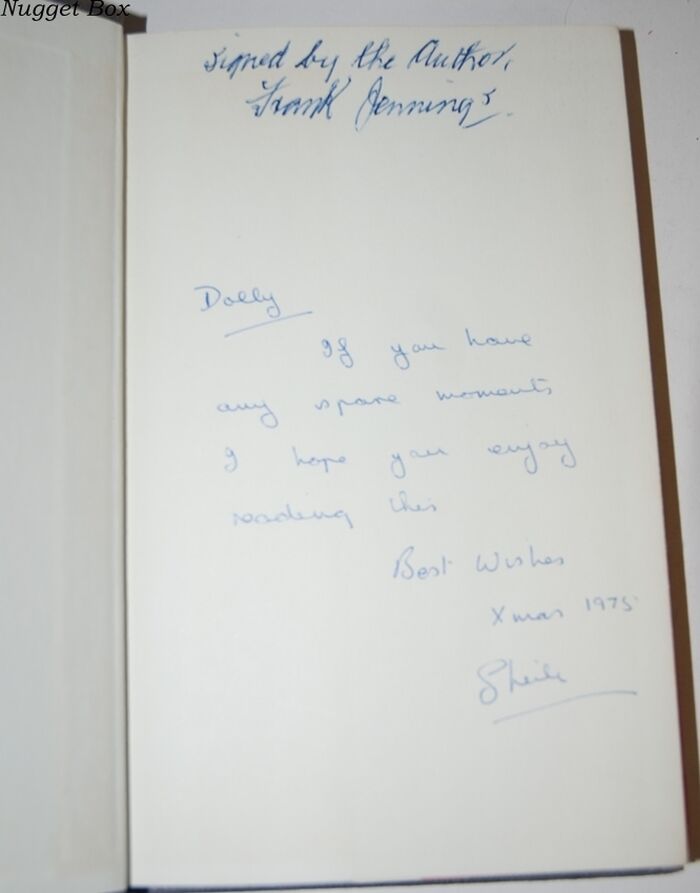 Nugget Box
signed by the Author,
Frank Jennings.
Dolly
If you have
any spare moments
I hope you enjoy
reading this
Best Wishes
Xmas 1975
Sheila